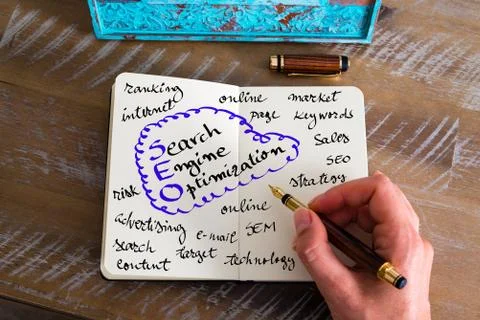 ranking
internet
online
page
market
keywords
Search
Engine
Optimization
Sales
SEO
strategy
risk
advertising
search
content
online
SEM
e-mail
target
technology